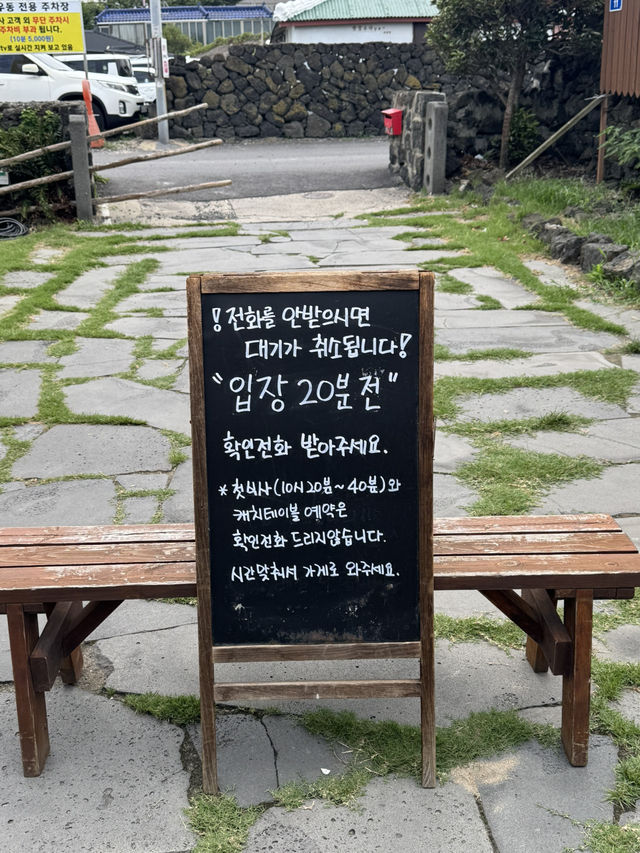 우동 전용 주차장
사 고객 외 무단 주차시
주차비 부과 됩니다.
(10분 5,000원)
! 전화를 안받으시면
대기가 취소됩니다!
"입장 20분전"
확인전화 받아주세요.
* 첫식사(10시 20분~40분)와
캐치테이블 예약은
확인전화 드리지않습니다.
시간맞춰서 가게로 와주세요.